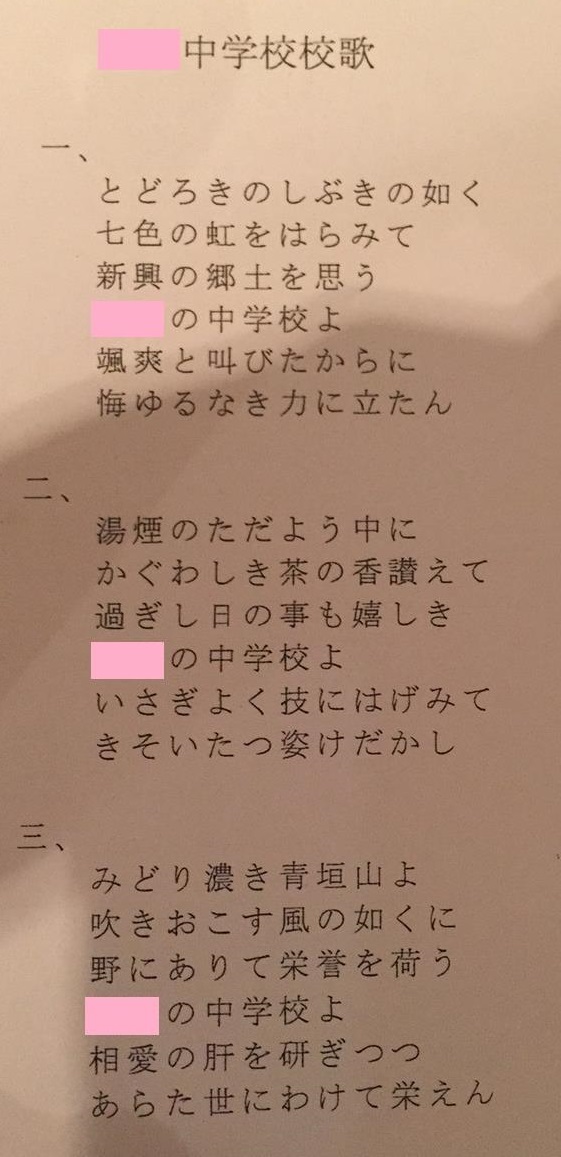 中学校校歌
一、
とどろきのしぶきの如く
七色の虹をはらみて
新興の郷土を思う
の中学校よ
颯爽と叫びたからに
悔ゆるなき力に立たん
二、
湯煙のただよう中に
かぐわしき茶の香讃えて
過ぎし日の事も嬉しき
の中学校よ
いさぎよく技にはげみて
きそいたつ姿けだかし
三、
みどり濃き青垣山よ
吹きおこす風の如くに
野にありて栄誉を荷う
の中学校よ
相愛の肝を研ぎつつ
あらた世にわけて栄えん